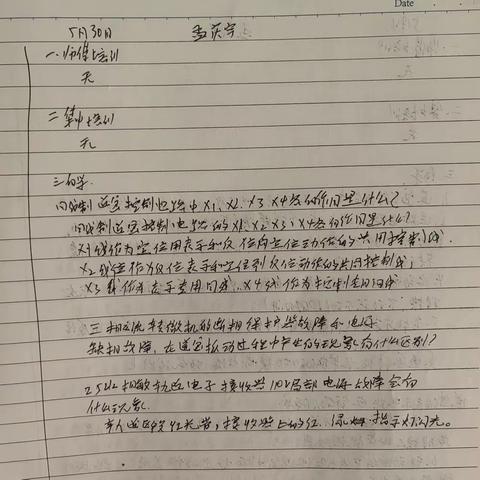 Date
5月30日 孟庆宇
一.师傅培训
无
二集中培训
无
三自学
四线制道岔控制电路中X1、X2、X3 X4各有何作用是什么?
四线制道岔控制电路的X1、X2、X3、X4各有何作用是什么?
X1线作为定位用表示和反位向定位动作的共用控制线.
X2线作为反位表示和定位到反位动作的共用控制线;
X3线作为表示专用回线、X4线作为控制专用回线
三相交流转辙机的断相保护器故障和电源
缺相故障,在道岔扳动过程中产生的现象有什么区别?
25Hz相敏轨道电子接收器 局部电源故障会有
什么现象.
有个区段红光带,接收器上的红、绿 指示灯闪光。